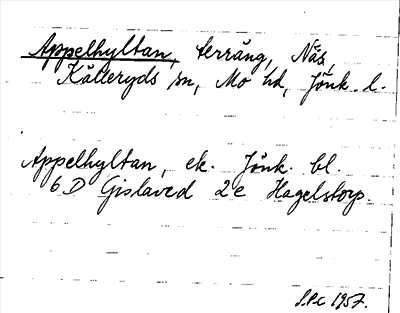 Appelhyltan, terräng, Näs,
Kålleryds sn, Mo hd, Jönk. l.
Appelhyltan, ek. Jönk. bl.
6D Gislaved 2e Hagelstorp.
1957.